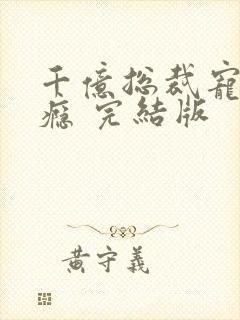 千億總裁寵
癮 完結版
黃守義